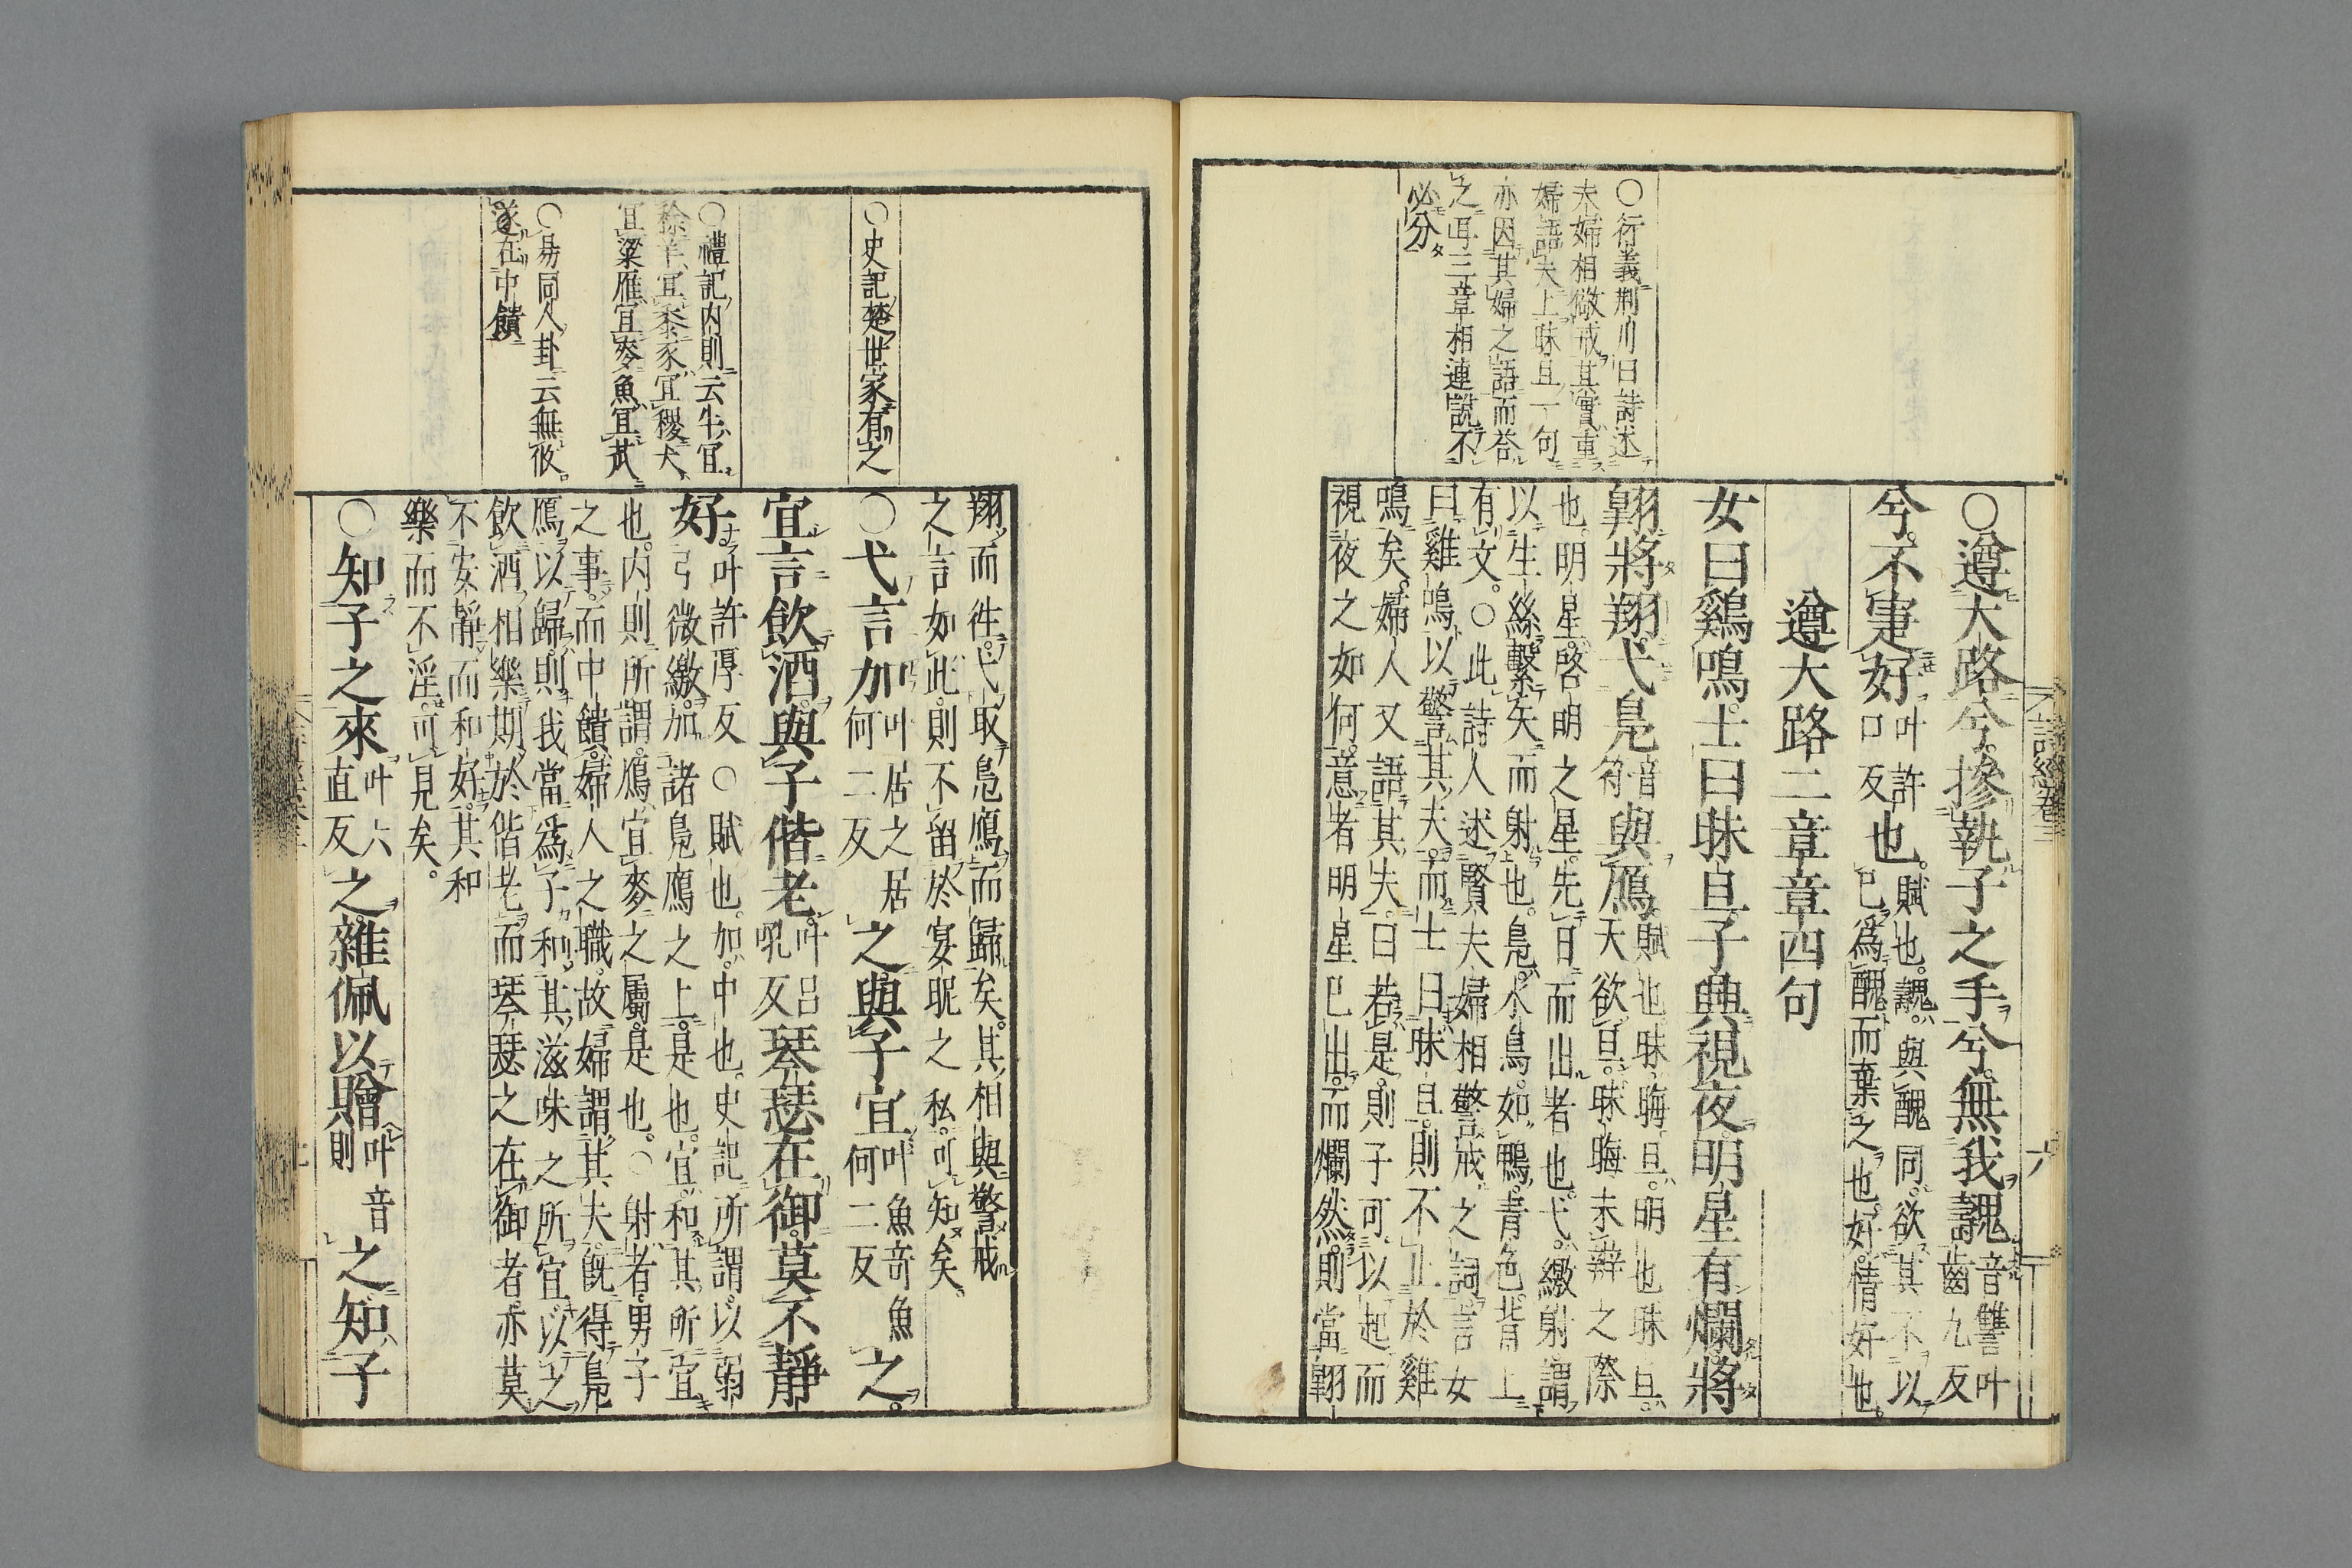 ○行義荆川曰詩述
夫婦相儆戒其實重
婦語夫上昧旦一句
亦因其婦之語而荅
之耳三章相連説不
必分
詩經卷二
六
○遵大路兮摻執子之手兮無我魗音讐叶齒九反
兮不寁好叶許口反也賦也魗與醜同欲其不以
已爲醜而棄之也好情好也
遵大路二章章四句
女曰鷄鳴士曰昧旦子興視夜明星有爛將
翱將翔弋鳧音符與鴈賦也昧晦旦明也昧旦
天欲旦昧晦未辨之際
也明星啓明之星先日而出者也弋繳射謂
以生絲繫矢而射也鳧水鳥如鴨青色背上
有文○此詩人述賢夫婦相警戒之詞言女
曰雞鳴以警其夫而士曰昧旦則不止於雞
鳴矣婦人又語其夫曰若是則子可以起而
視夜之如何意者明星已出而爛然則當翱
○史記楚世家有之
○禮記内則云牛宜
稌羊宜黍豕宜稷犬
宜粱雁宜麥魚宜苽
○易同人卦云無攸
遂在中饋
翔而徃弋取鳧鴈而歸矣其相與警戒
之言如此則不留於宴昵之私可知矣
○弋言加叶居之居何二反之與子宜叶魚奇魚何二反之
宜言飲酒與子偕老叶吕吼反琴瑟在御莫不靜
好叶許厚反○賦也加中也史記所謂以弱
弓微繳加諸鳧鴈之上是也宜和其所宜
也内則所謂鴈宜麥之屬是也○射者男子
之事而中饋婦人之職故婦謂其夫既得鳧
鴈以歸則我當爲子和其滋味之所宜以之
飲酒相樂期於偕老而琴瑟之在御者亦莫
不安靜而和好其和
樂而不淫可見矣
○知子之來叶六直反之雜佩以贈叶音則之知子